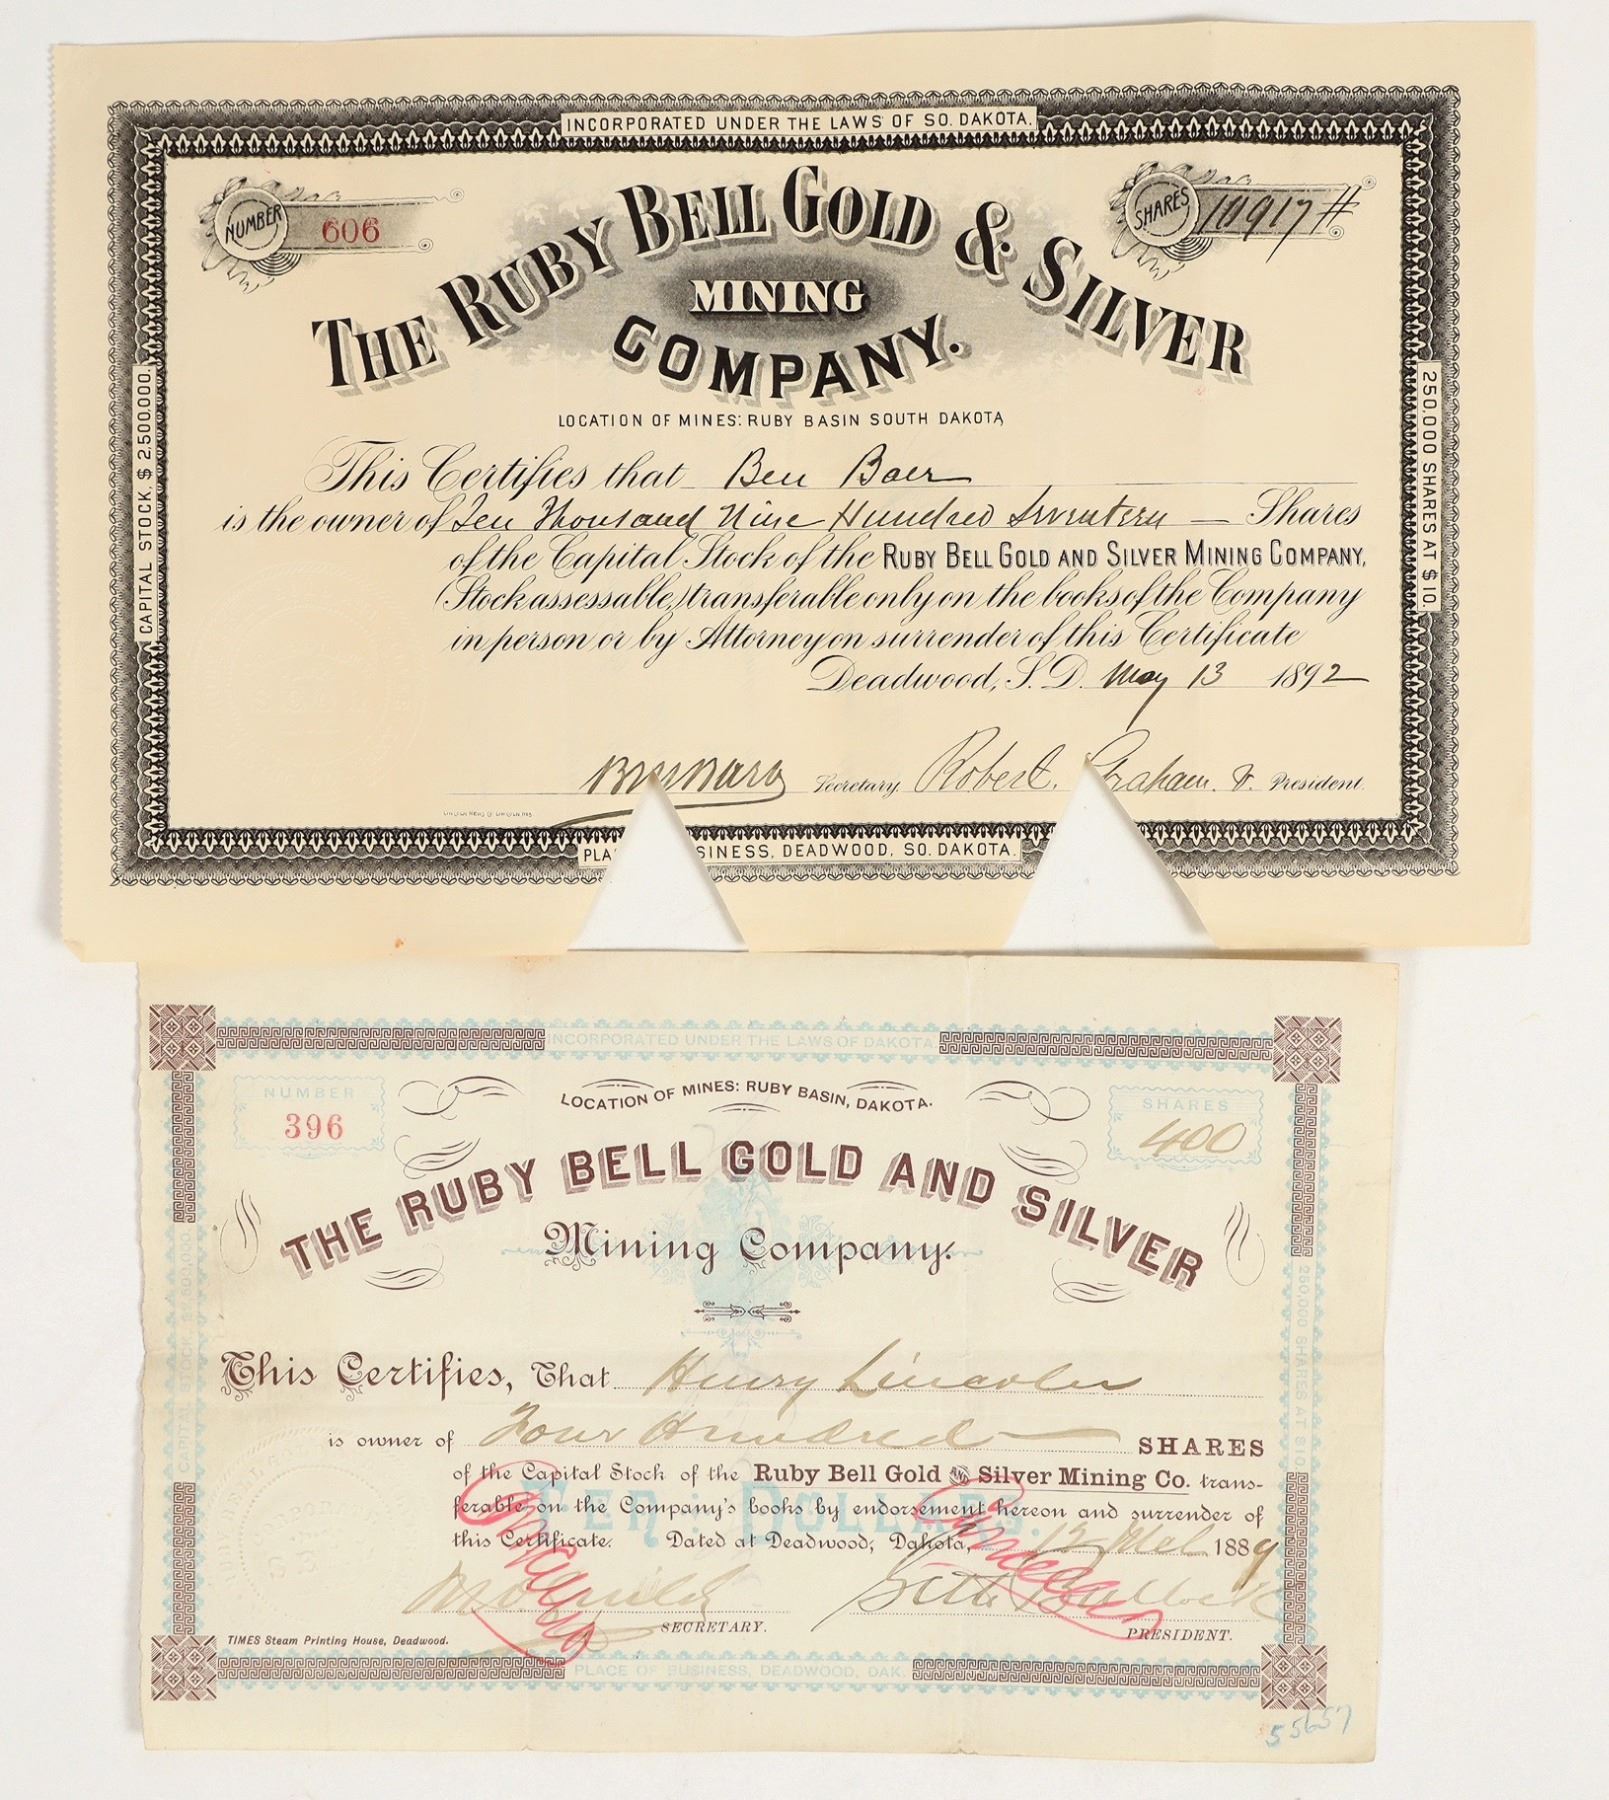 INCORPORATED UNDER THE LAWS OF SO. DAKOTA.
NUMBER 606
SHARES 10917 #
THE RUBY BELL GOLD & SILVER
MINING
COMPANY.
LOCATION OF MINES: RUBY BASIN SOUTH DAKOTA
CAPITAL STOCK, $ 2.500.000.
250.000 SHARES AT $ 10.
This Certifies that Ben Baer
is the owner of Ten Thousand Nine Hundred Seventeen — Shares
of the Capital Stock of the RUBY BELL GOLD AND SILVER MINING COMPANY,
(Stock assessable,) transferable only on the books of the Company
in person or by Attorney on surrender of this Certificate
Deadwood, S. D. May 13 1892
Secretary. Robert Graham. V. President.
PLA SINESS, DEADWOOD, SO. DAKOTA.
INCORPORATED UNDER THE LAWS OF DAKOTA.
NUMBER
396
SHARES
400
LOCATION OF MINES: RUBY BASIN, DAKOTA.
THE RUBY BELL GOLD AND SILVER
Mining Company.
CAPITAL STOCK, $2,500,000.
250,000 SHARES AT $10.
This Certifies, That Henry Lincoln
is owner of Four Hundred — SHARES
of the Capital Stock of the Ruby Bell Gold AND Silver Mining Co. trans-
ferable on the Company's books by endorsement hereon and surrender of
TEN DOLLARS.
this Certificate. Dated at Deadwood, Dakota, 12 Mch 1889
Cancelled
Cancelled
Seth Bullock
SECRETARY.
PRESIDENT.
TIMES Steam Printing House, Deadwood.
PLACE OF BUSINESS, DEADWOOD, DAK.
55657